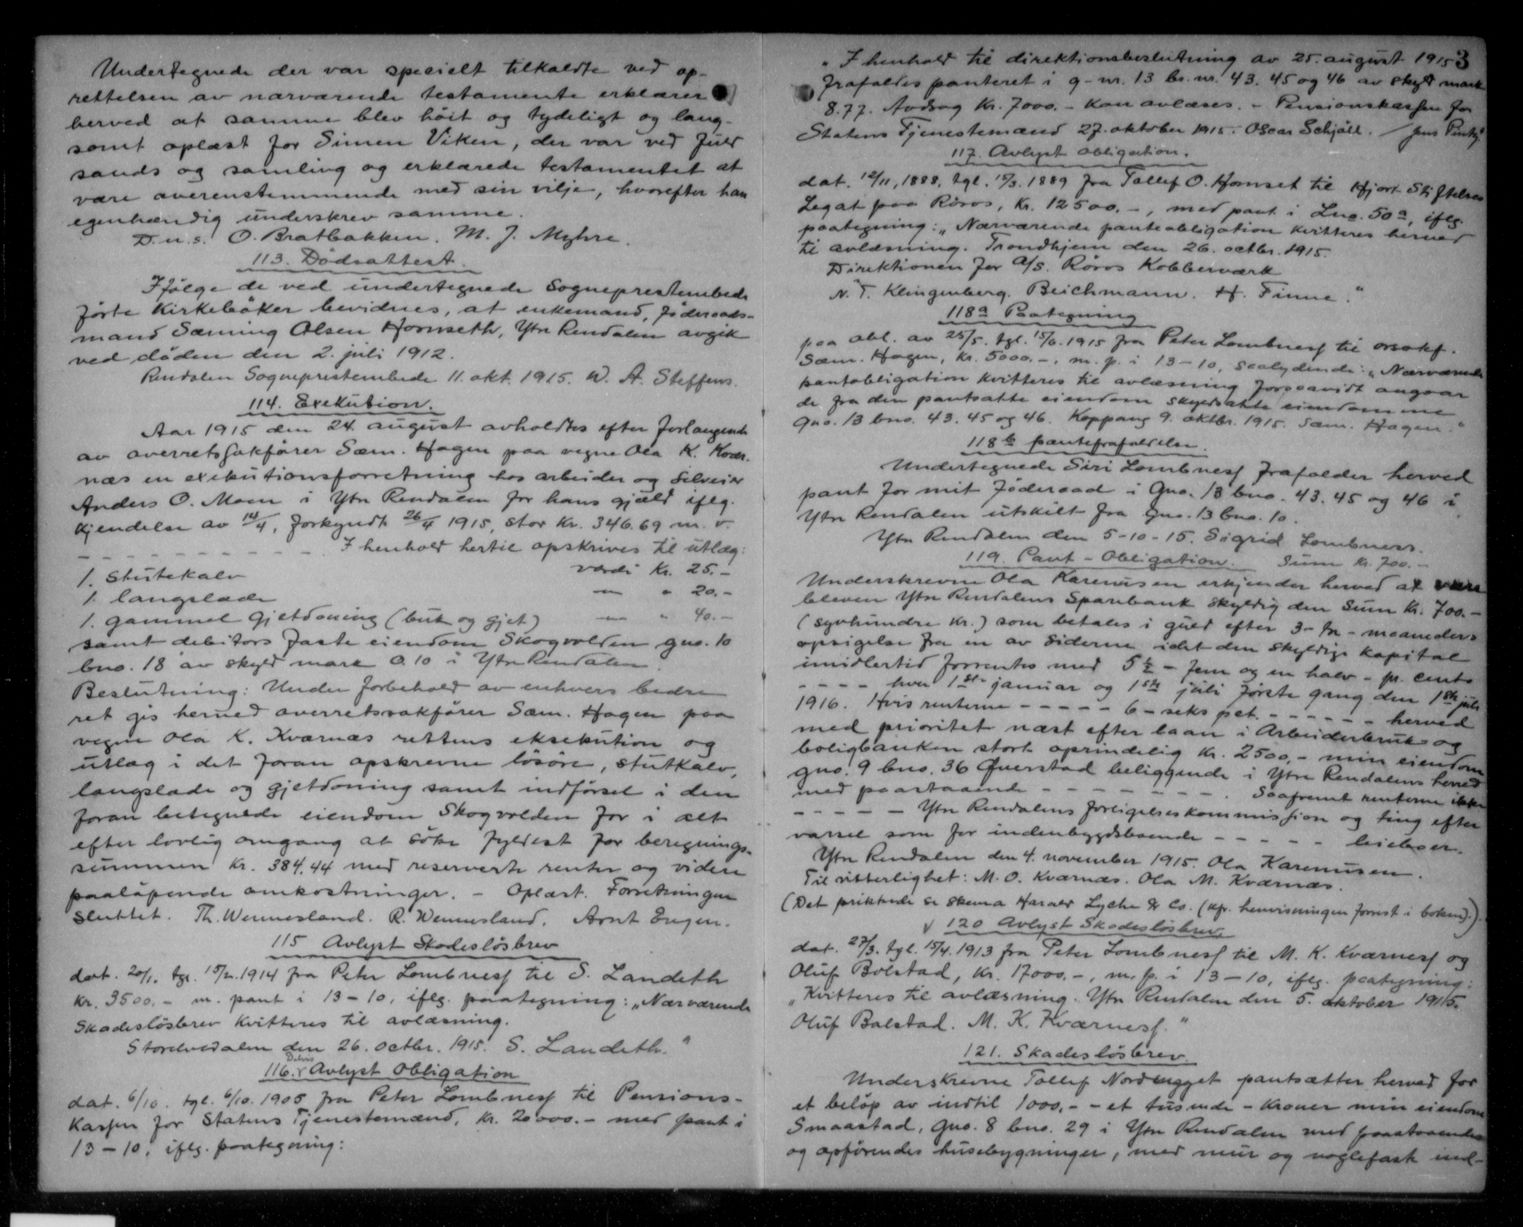 Undertegnede der var specielt tilkaldte ved op-
rettelsen av nærværende testamente erklærer
herved at samme blev höit og tydeligt og lang-
somt oplæst for Simen Viken, der var ved fuld
sands og samling og erklærede testamentet at
være overenstemmende med sin vilje, hvorefter han
egenhændig underskrev samme.
D.u.s. O. Bratbakken. M. J. Myhre.
113. Dödsattest.
Ifölge de ved undertegnede Sogneprestembede
förte Kirkeböker bevidnes, at enkemand, föderaads-
mand Sæming Olsen Hornseth, Ytre Rendalen avgik
ved döden den 2. juli 1912.
Rendalen Sogneprestembede 11. okt. 1915. W. A. Steffens.
114. Exekution.
Aar 1915 den 24. august avholdtes efter forlangende
av overretssakförer Sæm. Hagen paa vegne Ola K. Kvær-
næs en exekutionsforretning hos arbeider og selveier
Anders O. Moen i Ytre Rendalen for hans gjæld iflg.
Kjendelse av 14/4, forkyndt 26/4 1915, stor kr. 346.69 m. v.
- - - - - - - - - - I henhold hertil opskrives til utlæg:
1. stutekalv værdi kr. 25.-
1. langslæde — " 20.-
1. gammel gjetdoning (buk og gjet) — " 40.-
samt debitors faste eiendom Skogvolden gno. 10
bno. 18 av skyld mark 0.10 i Ytre Rendalen.
Beslutning: Under forbehold av enhvers bedre
ret gis herved overretssakförer Sæm. Hagen paa
vegne Ola K. Kværnæs rettens eksekution og
utlæg i det foran opskrevne lösöre, stutkalv,
langslæde og gjetdoning samt indförsel i den
foran betegnede eiendom Skogvolden for i alt
efter lovlig omgang at söke fyldest for beregnings-
summen kr. 384.44 med reserverte renter og videre
paalöpende omkostninger. - Oplæst. Forretningen
sluttet. Th. Wennesland. R. Wennesland. Arnt Engen.
115 Avlyst Skadeslösbrev
dat. 20/1. tgl. 15/2. 1914 fra Peter Lombness til S. Landeth
kr. 3500.- m. pant i 13-10, iflg. paategning: "Nærværende
Skadeslösbrev kvitteres til avlæsning.
Storelvedalen den 26. octbr. 1915. S. Landeth."
Delvis
116. Avlyst Obligation
dat. 6/10. tgl. 6/10. 1905 fra Peter Lombness til Pensions-
kassen for Statens Tjenestemænd, kr. 20000.- med pant i
13-10, iflg. paategning:
3
"I henhold til direktionsbeslutning av 25. august 1915
frafaldes panteret i g-nr. 13 br.nr. 43. 45 og 46 av skyld mark
8.77. Avdrag kr. 7000.- kan avlæses. - Pensionskassen for
Statens Tjenestemænd 27. oktober 1915. Oscar Schjöll. /
117. Avlyst Obligation.
dat. 12/11, 1888, tgl. 15/3. 1889 fra Tollef O. Hornset til Hjort Stiftelses
Legat paa Röros, kr. 12500.-, med pant i Lno. 50a, iflg.
paategning: "Nærværende panteobligation kvitteres herved
til avlæsning. Trondhjem den 26. octbr. 1915.
Direktionen for A/S. Röros Kobberværk
N. T. Klingenberg. Beichmann. H. Finne."
118a Paategning
paa obl. av 25/5. tgl. 15/6. 1915 fra Peter Lombness til orsakf.
Sæm. Hagen, kr. 5000.-, m. p. i 13-10, saalydende: "Nærværende
pantobligation kvitteres til avlæsning forsaavidt angaar
de fra den pantsatte eiendom skyldsatte eiendomme
gno. 13 bno. 43. 45 og 46. Koppang 9. oktbr. 1915. Sæm. Hagen."
118b pantefrafaldelse
Undertegnede Siri Lombness frafalder herved
pant for mit föderaad i gno. 13 bno. 43. 45 og 46 i
Ytre Rendalen utskilt fra gno. 13 bno. 10.
Ytre Rendalen den 5-10-15. Sigrid Lombness.
119. Pant-Obligation. Sum kr. 700.-
Underskrevne Ola Karenusen erkjender herved at være
bleven Ytre Rendalens Sparebank skyldig den sum kr. 700.-
(syvhundre kr.) som betales i guld efter 3-tre-maaneders
opsigelse fra en av siderne idet den skyldige kapital
imidlertid forrentes med 5½ - fem og en halv - pr. cento
- - - - hver 1ste januar og 1ste juli förste gang den 1ste juli
1916. Hvis renterne - - - - - 6 - seks pct. - - - - - - herved
med prioritet næst efter laan i Arbeiderbruk og
boligbanken stort oprindelig kr. 2500.- min eiendom
gno. 9 bno. 36 Querstad beliggende i Ytre Rendalens herred
med paastaaende - - - - - - - - . Saafremt renterne ikke
- - - - - Ytre Rendalens forligelseskommission og ting efter
varsel som for indenbygdsboende - - - - - beieboer.
Ytre Rendalen den 4. november 1915. Ola Karenusen.
Til vitterlighet: M. O. Kværnæs. Ola M. Kværnæs.
(Det prikkede se skema Harald Lyche & Co. (kfr. henvisningen forrest i boken).)
120 Avlyst Skadeslösbrev
dat. 27/3. tgl. 15/4. 1913 fra Peter Lombness til M. K. Kværness og
Oluf Bolstad, kr. 17000.-, m. p. i 13-10, iflg. paategning:
"Kvitteres til avlæsning. Ytre Rendalen den 5. oktober 1915.
Oluf Bolstad. M. K. Kværness."
121. Skadeslösbrev
Underskrevne Tollef Nordengget pantsætter herved for
et belöp av indtil 1000.- - et tusende - kroner min eiendom
Smaastad, gno. 8 bno. 29 i Ytre Rendalen med paastaaende
og opförendes husebygninger, med mur og naglefast ind-